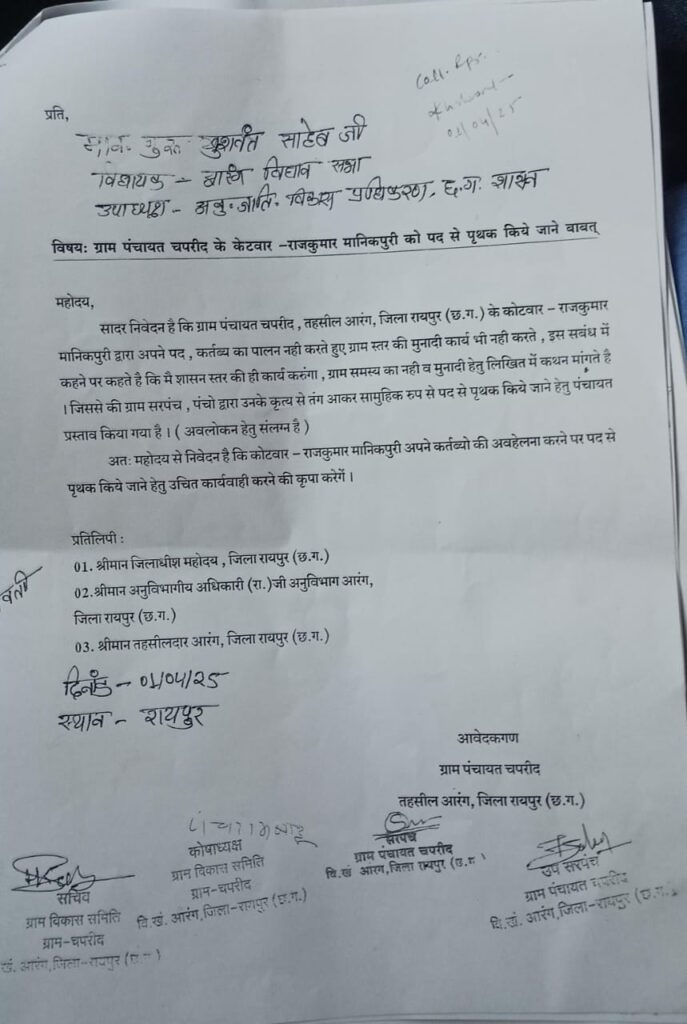 Coll. Rpr.
01/04/25
प्रति,
मान. गुरु खुशवंत साहेब जी
विधायक - आरंग विधान सभा
उपाध्यक्ष - अनु. जाति. विकास प्राधिकरण, छ.ग. शासन
विषयः ग्राम पंचायत चपरीद के केटवार –राजकुमार मानिकपुरी को पद से पृथक किये जाने बाबत्
महोदय,
सादर निवेदन है कि ग्राम पंचायत चपरीद , तहसील आरंग, जिला रायपुर (छ.ग.) के कोटवार – राजकुमार
मानिकपुरी द्वारा अपने पद , कर्तव्य का पालन नही करते हुए ग्राम स्तर की मुनादी कार्य भी नही करते , इस सबंध में
कहने पर कहते है कि मै शासन स्तर की ही कार्य करुंगा , ग्राम समस्य का नही व मुनादी हेतु लिखित में कथन मांगते है
। जिससे की ग्राम सरपंच , पंचो द्वारा उनके कृत्य से तंग आकर सामुहिक रुप से पद से पृथक किये जाने हेतु पंचायत
प्रस्ताव किया गया है । ( अवलोकन हेतु संलग्न है )
अतः महोदय से निवेदन है कि कोटवार – राजकुमार मानिकपुरी अपने कर्तव्यो की अवहेलना करने पर पद से
पृथक किये जाने हेतु उचित कार्यवाही करने की कृपा करेगें ।
प्रतिलिपी :
01. श्रीमान जिलाधीश महोदय , जिला रायपुर (छ.ग.)
02.श्रीमान अनुविभागीय अधिकारी (रा.)जी अनुविभाग आरंग,
जिला रायपुर (छ.ग.)
03. श्रीमान तहसीलदार आरंग, जिला रायपुर (छ.ग.)
वती
दिनांक - 01/04/25
स्थान - रायपुर
आवेदकगण
ग्राम पंचायत चपरीद
तहसील आरंग, जिला रायपुर (छ.ग.)
सरपंच
ग्राम पंचायत चपरीद
वि.खं आरंग,जिला रायपुर (छ.ग.)
कोषाध्यक्ष
ग्राम विकास समिति
ग्राम-चपरीद
वि.खं. आरंग,जिला-रायपुर (छ.ग.)
उप सरपंच
ग्राम पंचायत चपरीद
वि.खं. आरंग,जिला-रायपुर (छ.ग.
सचिव
ग्राम विकास समिति
ग्राम-चपरीद
खं. आरंग,जिला-रायपुर (छ.ग.)